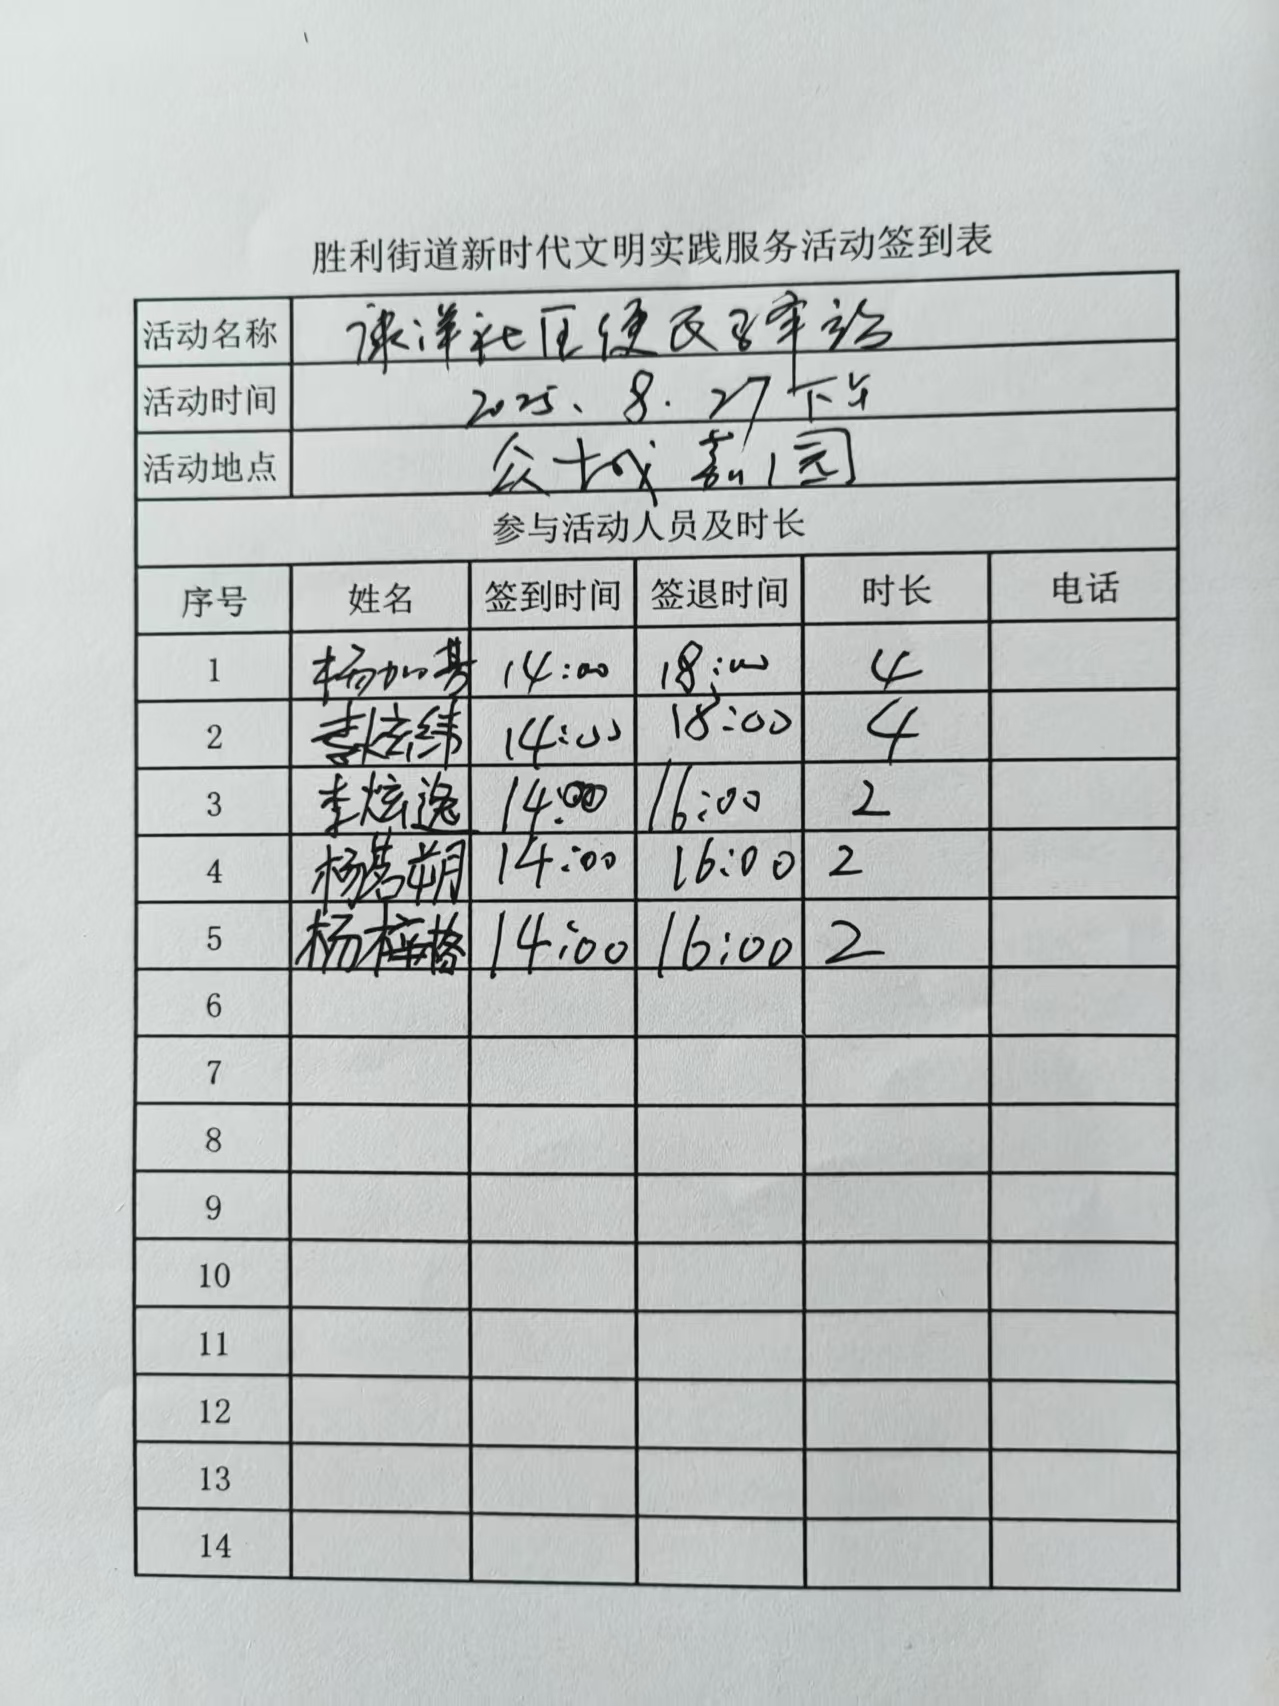 胜利街道新时代文明实践服务活动签到表
活动名称 社区便民
活动时间 2025、8.27下午
活动地点 众城嘉园
参与活动人员及时长
序号 姓名 签到时间 签退时间 时长 电话
1 杨加 14:00 18:00 4
2 李炫纬 14:00 18:00 4
3 李炫逸 14:00 16:00 2
4 杨茗朔 14:00 16:00 2
5 杨梓 14:00 16:00 2
6
7
8
9
10
11
12
13
14